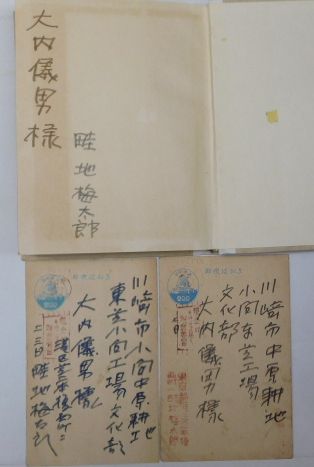 大内儀男様
畦地梅太郎
郵便はがき
川崎市小向中原耕地
東芝小向工場文化部
大内儀男様
二三日 畦地梅太郎
郵便はがき
川崎市中原耕地
小向東芝工場
文化部
大内儀男様